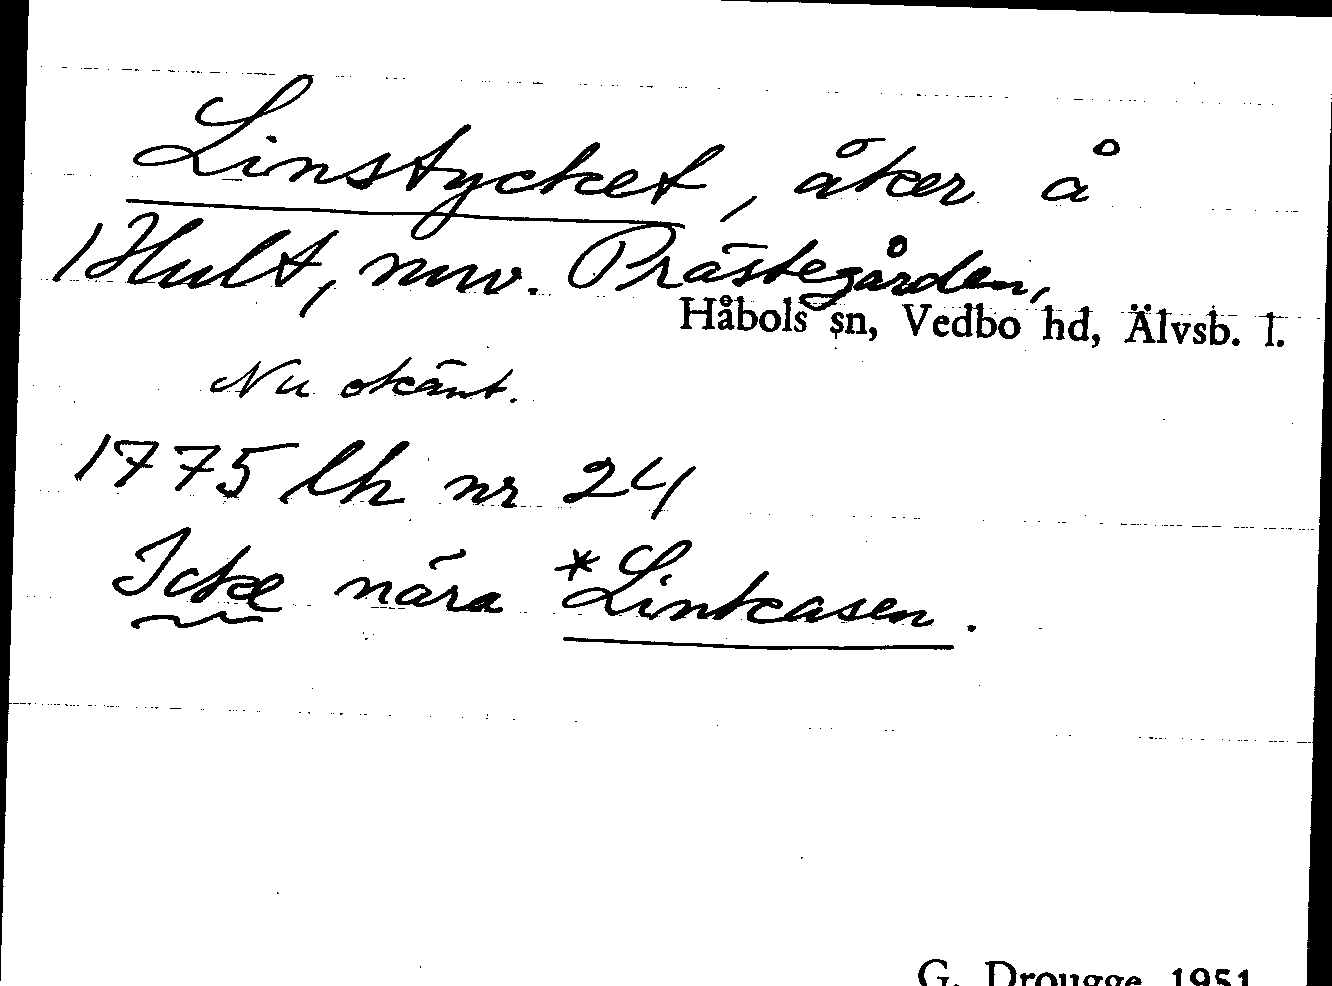 Linstycket, åker å
1 Hult, nuv. Prästegården,
Håbols sn, Vedbo hd, Älvsb. l.
Nu okänt.
1775 lh nr 24
Icke nära *Linkasen.
G. Drougge 1951